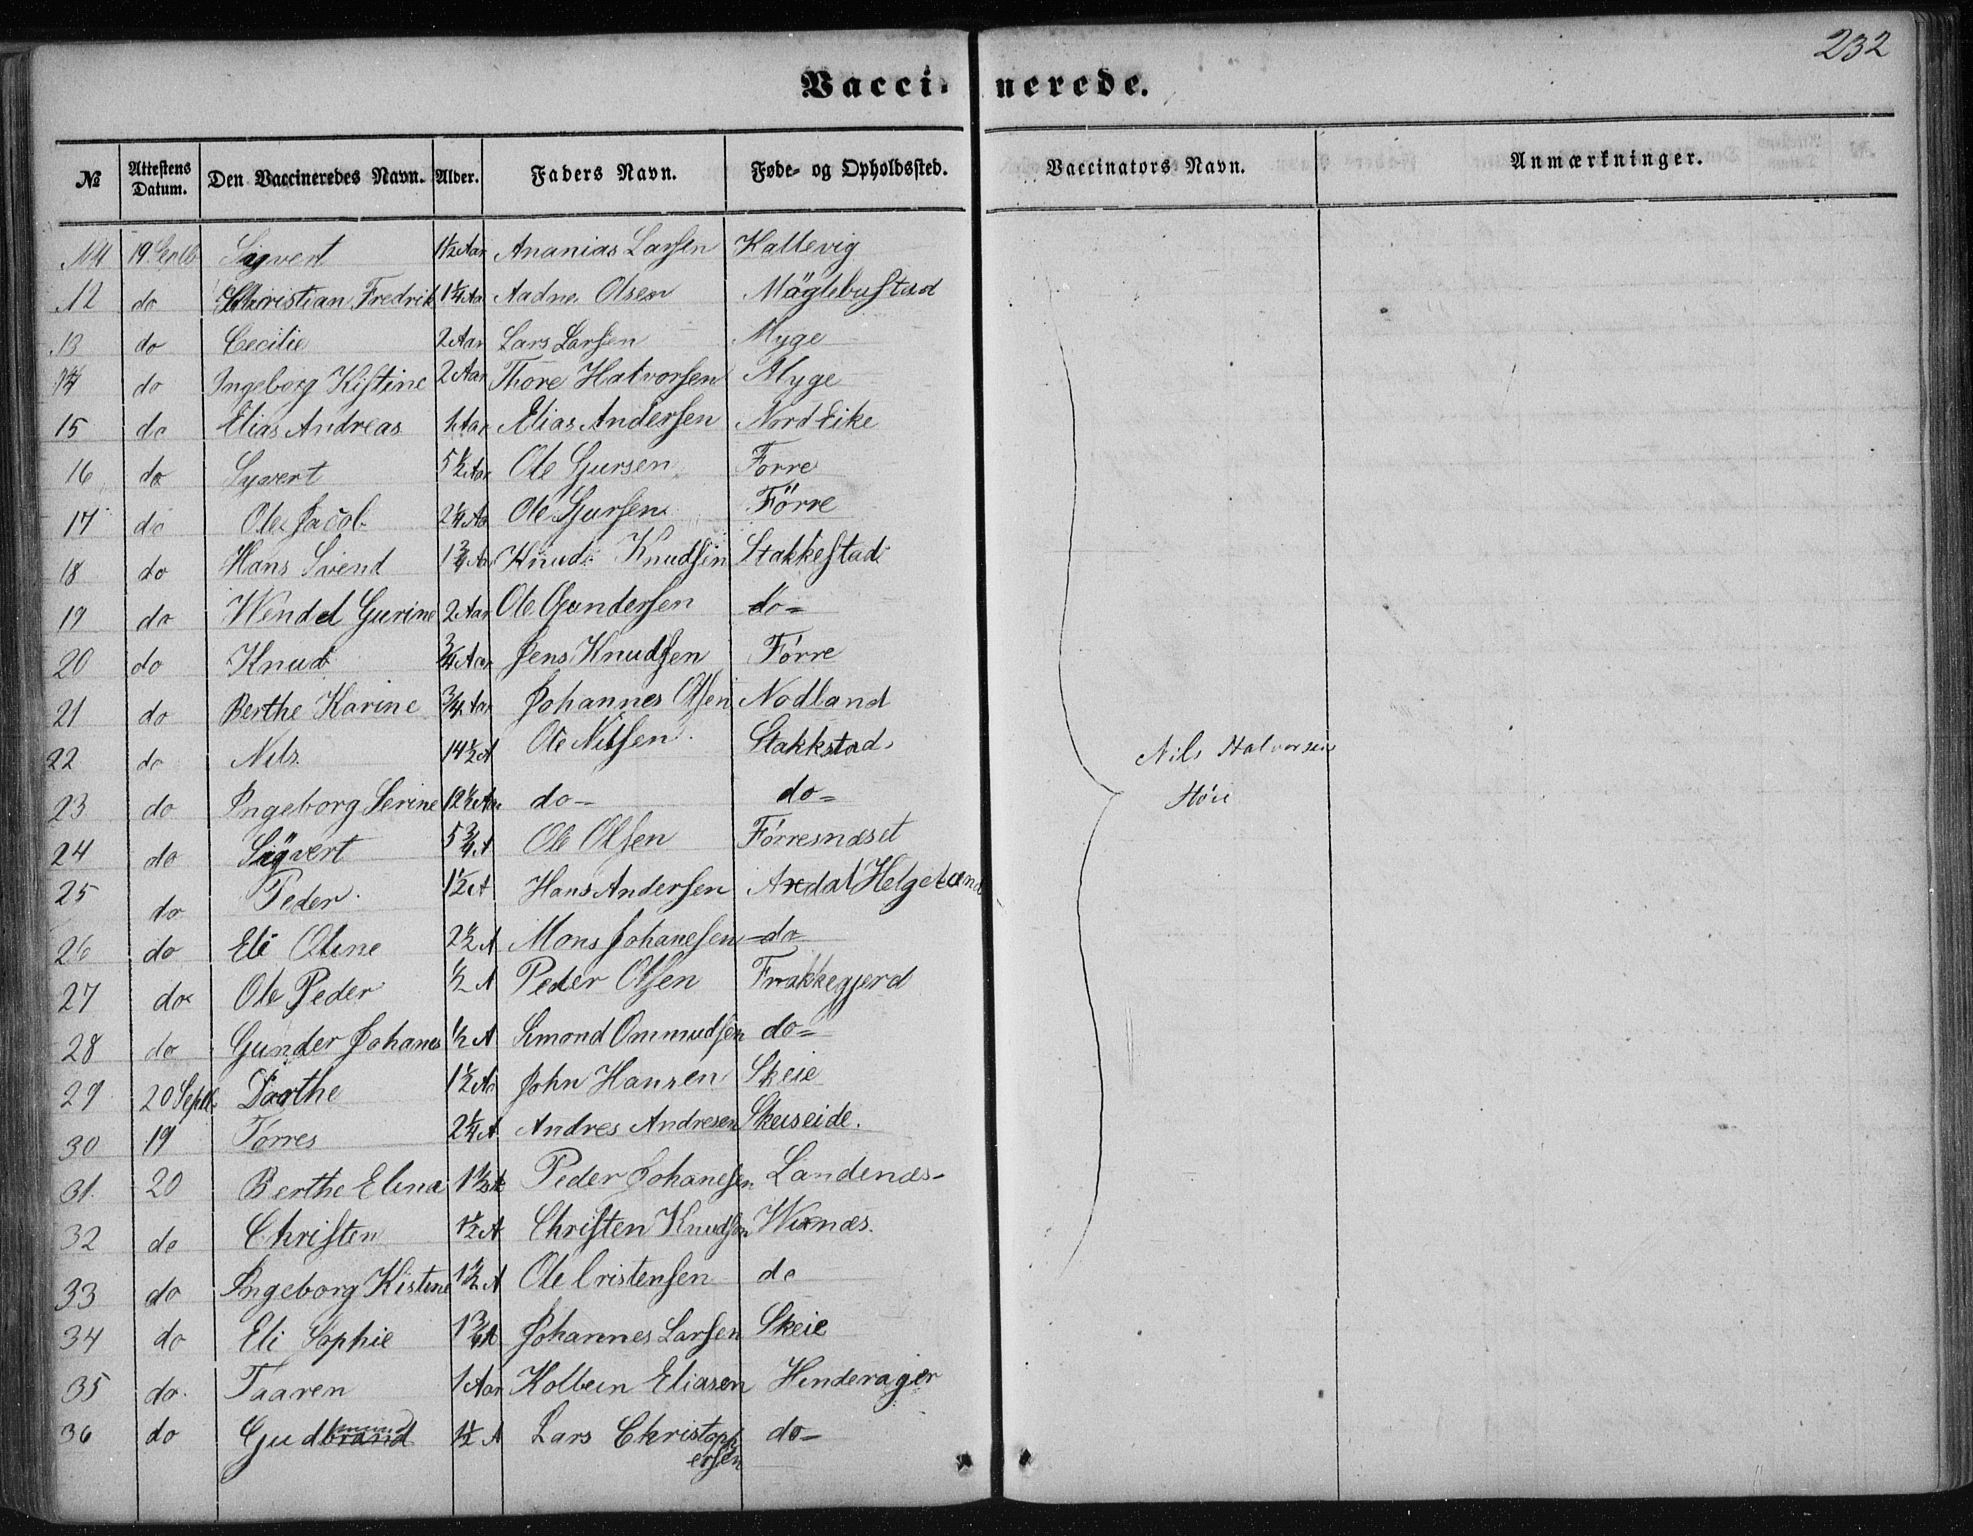 232
Vaccinerede.
№ Attestens Datum. Den Vaccineredes Navn. Alder. Faders Navn. Føde- og Opholdssted. Vaccinators Navn. Anmærkninger.
11 19 Septb Sigvert 1½ Aar Ananias Larsen Kallevig
12 do Christian Fredrik 1¼ Aa Aadne Olsen Mäglebustad
13 do Cecilie 2 Aar Lars Larsen Myge
14 do Ingeborg Kistine 2 Aar Thore Halvorsen Myge
15 do Elias Andreas 1 Aar Elias Andersen Nord Eike
16 do Syvert 5½ Aar Ole Gursen Forre
17 do Ole Jacob 2¼ Aa Ole Gursen Förre
18 do Hans Svend 1¾ Aa Knud Knudsin Stakkestad
19 do Wendel Gurine 2 Aar Ole Gundersen do=
20 do Knud ¾ Aar Jens Knudsen Førre
21 do Berthe Karine ¾ Aar Johannes Olsen Nodland
22 do Nils 14½ A Ole Nilsen Stakkstad
23 do Ingeborg Serine 12½ Aar do- do=
24 do Sigvert 5¾ A Ole Olsen Førresnæset
25 do Peder 1½ A Hans Andersen Helgeland
26 do Eli Oline 2½ A Mons Johanesen do
27 do Ole Peder ½ A Peder Olsen Frakkegjerd
28 do Gunder Johanes ½ A Simond Ommudsen do=
29 20 Septb. Dorthe 1½ Aa John Hansen Skeie
30 19 Tørres 2¼ A Andres Andresen Skeiseide.
31 20 Berthe Elina 1½ A Peder Johanesen Landenæs-
32 do Christen 1½ A Christen Knudsen Wixnæs.
33 do Ingeborg Kistine 1½ A Ole Cristensen do
34 do Eli Sophie 1¾ A Johannes Larsen Skeie
35 do Taaren 1 Aar Kolbein Eliasen Hinderager
36 do Gudmund 1½ A Lars Christophersen do-
Nils Halvorsen
Høie